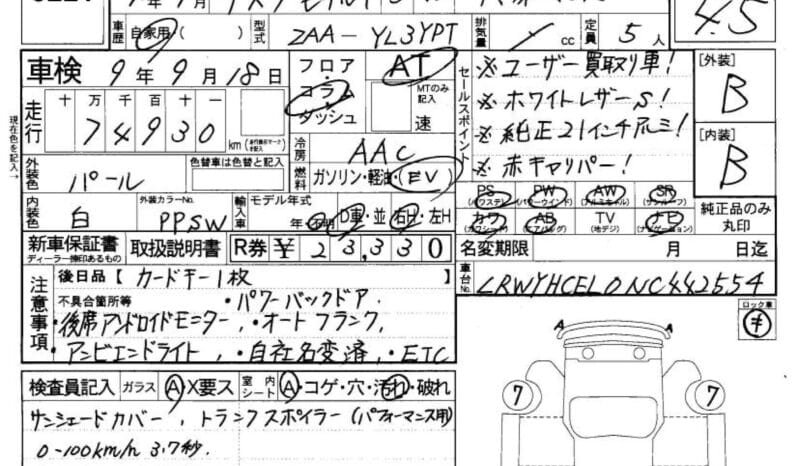 4.5
車歴 自家用 ( ) 型式 ZAA-YL3YPT 排気量 / cc 定員 5人
車検 9年9月18日
フロア コラム ダッシュ AT MTのみ記入 速
セールスポイント
※ユーザー買取り車!
※ホワイトレザーS!
※純正21インチアルミ!
※赤キャリパー!
[外装] B
[内装] B
現在色を記入→
走行 十万千百十一 74930 km
冷房 AAC
燃料 ガソリン・軽油・EV
外装色 パール 色替車は色替と記入
内装色 白 外装カラーNo. PPSW
輸入車 モデル年式 年・不明 D車・並 右H・左H
PS (パワステ) PW (パワーウインド) AW (アルミホイル) SR (サンルーフ)
カワ (カワシート) AB (エアバッグ) TV (地デジ) ナビ (ナビゲーション)
純正品のみ丸印
新車保証書 ディーラー捺印あるもの 取扱説明書 R券 ¥23,330
名変期限 月 日迄
注意事項
後日品 [カードキー1枚
不具合箇所等 ・パワーバックドア
・後席アンドロイドモニター, ・オートフランク,
・アンビエンドライト, ・自社名変済, ・ETC
車台No. LRWYHCEL0NC442554
ロック車 キ
A A
7 7
検査員記入 ガラス A X要ス 室内シート A・コゲ・穴・汚れ・破れ
サンシェードカバー, トランクスポイラー (パフォーマンス用)
0-100km/h 3.7秒.